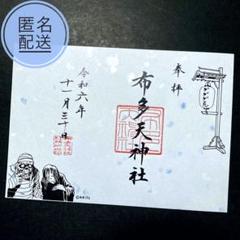 匿名
配送
奉拝
布多天神社
令和六年
十一月三十日